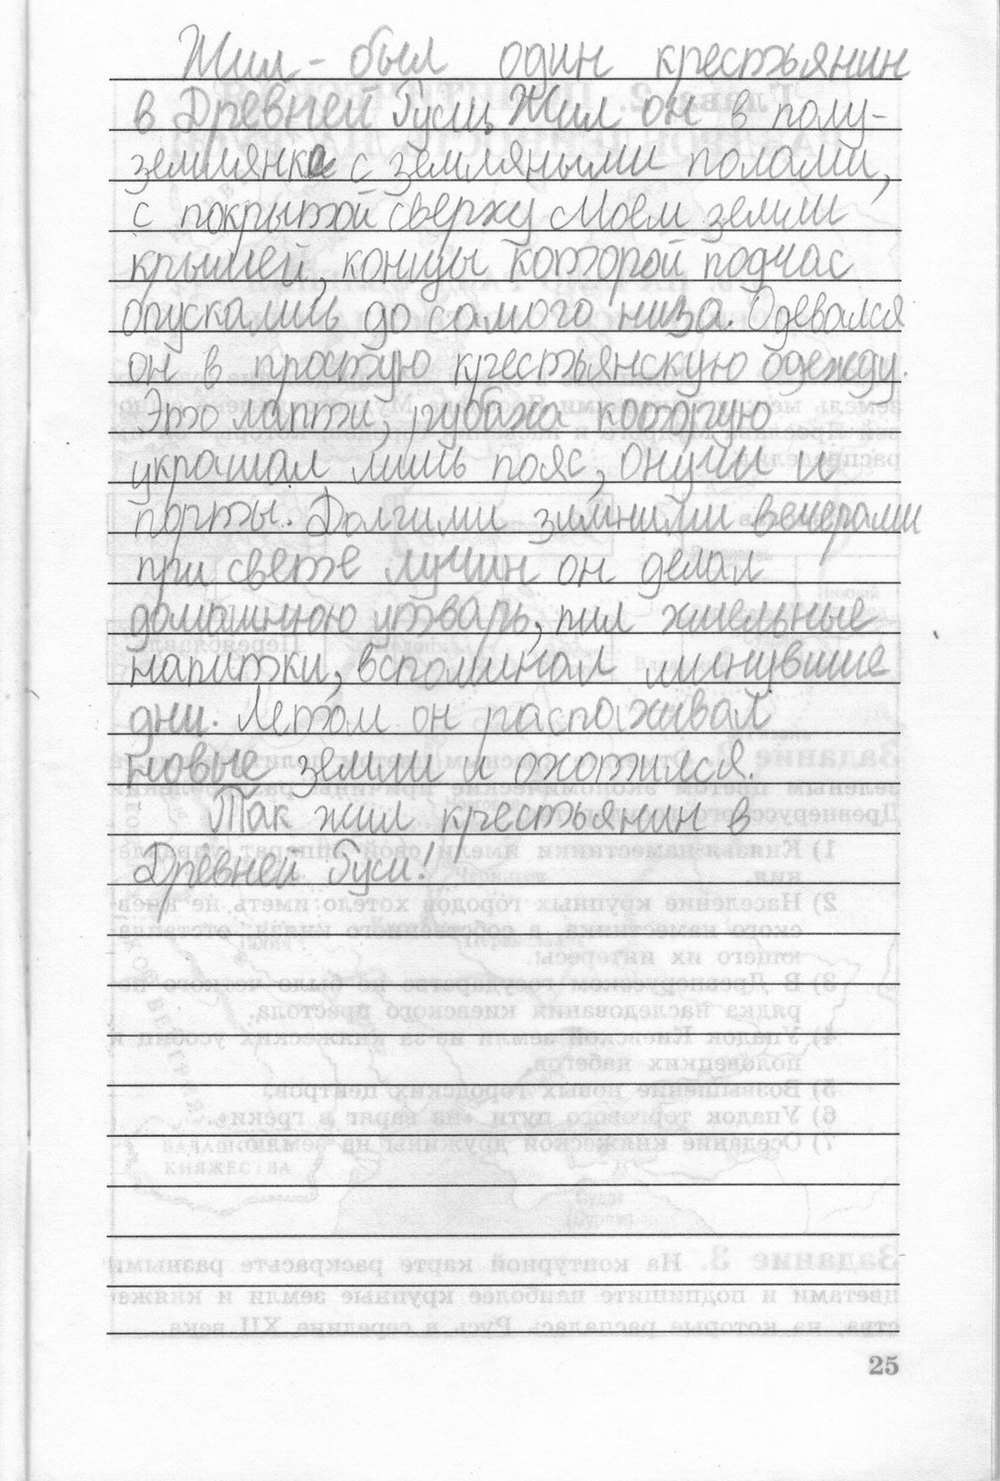 Жил-был один крестьянин
в Древней Руси. Жил он в полу-
землянке с земляными полами,
с покрытой сверху слоем земли
крышей, концы которой подчас
опускались до самого низа. Одевался
он в простую крестьянскую одежду.
Это лапти, рубаха которую
украшал лишь пояс, онучи и
порты. Долгими зимними вечерами
при свете лучин он делал
домашнюю утварь, пил хмельные
напитки, вспоминал минувшие
дни. Летом он распахивал
новые земли и охотился.
Так жил крестьянин в
Древней Руси!
25